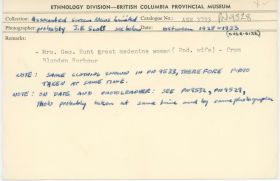 ETHNOLOGY DIVISION—BRITISH COLUMBIA PROVINCIAL MUSEUM
Collection: Associated Screen News Limited Catalogue No.: ASN 3793 PN9528
Photographer: probably J.B. Scott Date: between 1925-1935
Remarks:
- Mrs. Geo. Hunt great medecine woman (2nd. wife) - from
Blunden Harbour
NOTE: SAME CLOTHING SHOWN IN PN 9533, THEREFORE PHOTO
TAKEN AT SAME TIME.
NOTE: ON DATE AND PHOTOGRAPHER: SEE PN9532, PN9529,
Photo probably taken at same time and by same photographer